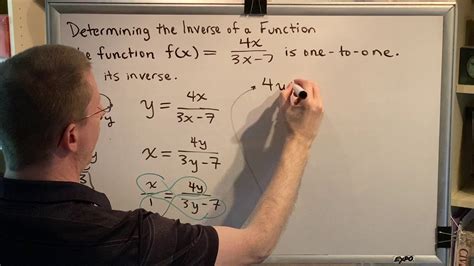 Determining the Inverse of a Function
he function f(x) = 4x / 3x-7 is one-to-one.
its inverse.
y
y = 4x / 3x-7
4y
x = 4y / 3y-7
x / 1 = 4y / 3y-7
EXPO